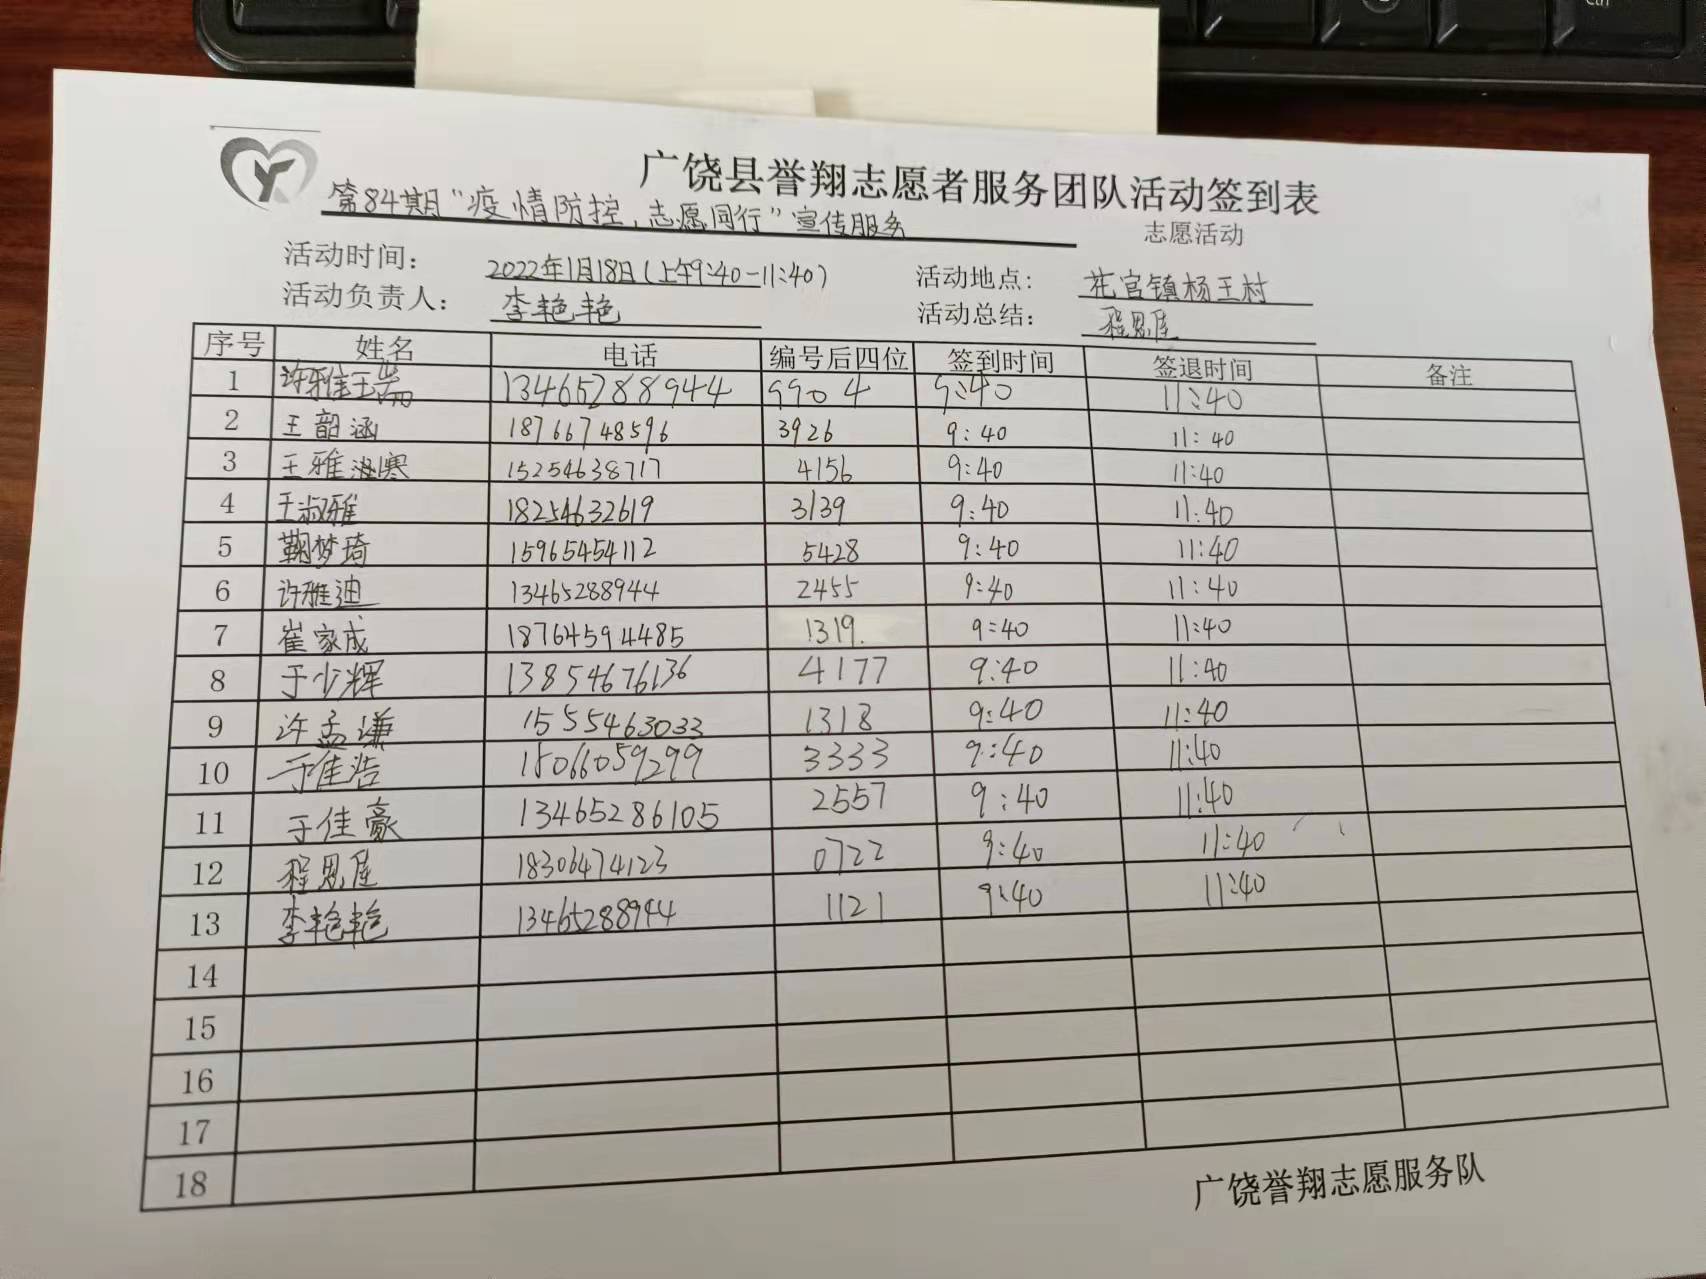 Ctrl
广饶县誉翔志愿者服务团队活动签到表
第84期"疫情防控,志愿同行"宣传服务 志愿活动
活动时间: 2022年1月18日(上午9:40-11:40) 活动地点: 花官镇杨王村
活动负责人: 李艳艳 活动总结: 程恩
序号 姓名 电话 编号后四位 签到时间 签退时间 备注
1 许雅 13465288944 9904 9:40 11:40
2 王韶涵 18766748596 3926 9:40 11:40
3 王雅涵寒 15254638717 4156 9:40 11:40
4 王淑雅 18254632619 3139 9:40 11:40
5 鞠梦琦 15965454112 5428 9:40 11:40
6 许雅迪 13465288944 2455 9:40 11:40
7 崔家成 18764594485 1319. 9:40 11:40
8 于少辉 13854676136 4177 9:40 11:40
9 许孟谦 15554463033 1318 9:40 11:40
10 于佳浩 15066059299 3333 9:40 11:40
11 于佳豪 13465286105 2557 9:40 11:40
12 程恩 18306474123 0722 9:40 11:40
13 李艳艳 13465288944 1121 9:40 11:40
14
15
16
17
18
广饶誉翔志愿服务队